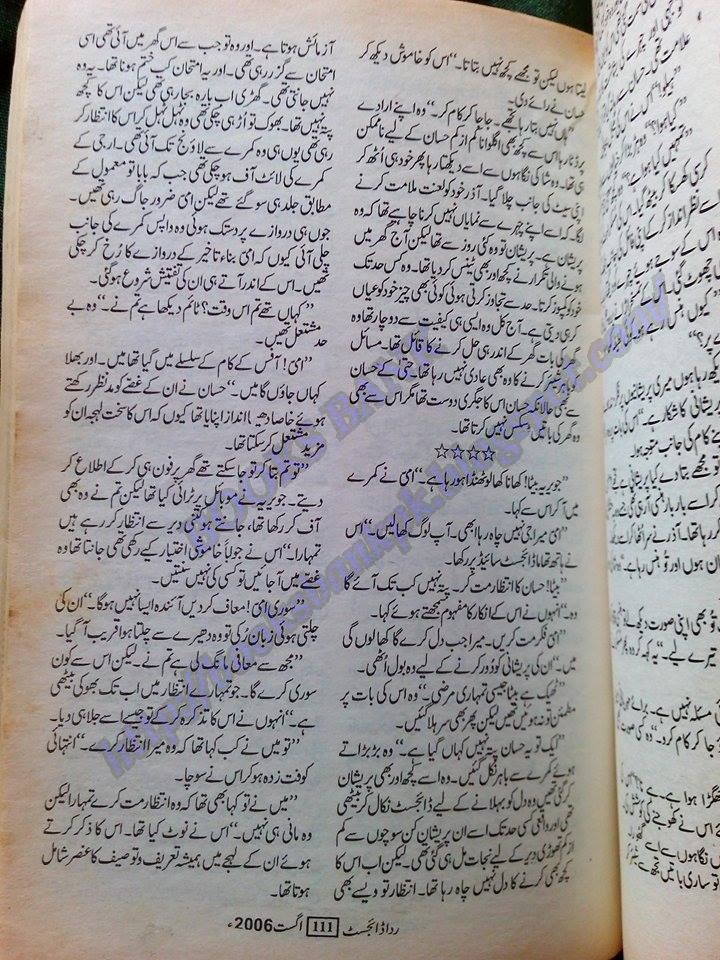 لیتا ہوں لیکن تو مجھے کچھ نہیں بتاتا۔“ اس کو خاموش دیکھ کر
حسان نے رائے دی۔
”ہاں نہیں بتا رہا تجھے۔ جا جا کر کام کر۔“ وہ اپنے ارادے
پر ڈٹا رہا اس سے کچھ بھی اگلوانا کم از کم حسان کے لیے ناممکن
ہی تھا۔ وہ شاکی نگاہوں سے اسے دیکھتا رہا پھر خود ہی اٹھ کر
اپنی سیٹ کی جانب چلا گیا۔ آذر خود کو لعنت ملامت کرنے
لگا کہ اسے اپنے چہرے سے نمایاں نہیں کرنا چاہیے تھا کہ وہ
پریشان ہے۔ پریشان تو وہ کئی روز سے تھا لیکن آج گھر میں
ہونے والی تکرار نے کچھ اور بھی ٹینس کر دیا تھا۔ وہ کس حد تک
خود کو کمپوز کرتا۔ حد سے تجاوز کرتی ہوئی کوئی بھی چیز خود کو عیاں
کر ہی دیتی ہے۔ آج کل وہ ایسی ہی کیفیت سے دوچار تھا وہ
گھر کی بات گھر کے اندر ہی حل کرنے کا قائل تھا۔ مسائل
کو باہر شیئر کرنے کا وہ بھی عادی نہیں رہا تھا۔ حتیٰ کے حسان
سے بھی حالانکہ حسان اس کا جگری دوست تھا مگر اس سے بھی
وہ گھر کی باتیں ڈسکس نہیں کرتا تھا۔
☆☆☆☆
”جویریہ بیٹا! کھانا کھا لو ٹھنڈا ہو رہا ہے۔“ امی نے کمرے
میں آ کر اس سے کہا۔
”امی میرا جی نہیں چاہ رہا ابھی۔ آپ لوگ کھا لیں۔“ اس
نے ہاتھ تھاما ڈائجسٹ سائیڈ پر رکھا۔
”بیٹا! حسان کا انتظار مت کر۔ پتہ نہیں کب تک آئے گا
وہ۔“ انہوں نے اس کے انکار کا مفہوم سمجھتے ہوئے کہا۔
”امی فکر مت کریں۔ میرا جب دل کرے گا کھا لوں گی
میں۔“ ان کی پریشانی کو دور کرنے کے لیے وہ بول اٹھی۔
”ٹھیک ہے بیٹا جیسی تمہاری مرضی۔“ وہ اس کی بات پر
مطمئن تو نہ ہوئیں تھیں لیکن پھر بھی سر ہلا گئیں۔
”ایک تو یہ حسان پتہ نہیں کہاں گیا ہے۔“ وہ بڑبڑاتے
ہوئے کمرے سے باہر نکل گئیں۔ وہ اسے کچھ اور بھی پریشان
کر گئی تھیں وہ دل کو بہلانے کے لیے ڈائجسٹ نکال کر بیٹھی
تھی اور واقعی کسی حد تک اسے ان پریشان کن سوچوں سے کم
از کم تھوڑی دیر کے لیے نجات مل ہی گئی تھی۔ لیکن اب اس کا
کچھ بھی کرنے کا دل نہیں چاہ رہا تھا۔ انتظار تو ویسے بھی
آزمائش ہوتا ہے۔ اور وہ تو جب سے اس گھر میں آئی تھی اسی
امتحان سے گزر رہی تھی۔ اور یہ امتحان کب ختم ہونا تھا۔ یہ وہ
نہیں جانتی تھی۔ گھڑی اب بارہ بجا رہی تھی لیکن اس کا کچھ
پتہ نہیں تھا۔ بھوک تو اڑ ہی چکی تھی وہ ٹہل ٹہل کر اس کا انتظار کر
رہی تھی یوں ہی وہ کمرے سے لاؤنج تک آئی تھی۔ ارحی کے
کمرے کی لائٹ آف ہو چکی تھی جب کہ بابا تو معمول کے
مطابق جلد ہی سو گئے تھے لیکن امی ضرور جاگ رہی تھیں۔
جوں ہی دروازے پر دستک ہوئی وہ واپس کمرے کی جانب
چلی آئی کیوں کہ امی بناء تاخیر کے دروازے کا رُخ کر چکی
تھیں۔ اس کے اندر آتے ہی ان کی تفتیش شروع ہو گئی۔
”کہاں تھے تم اس وقت؟ ٹائم دیکھا ہے تم نے۔“ وہ بے
حد مشتعل تھیں۔
”امی! آفس کے کام کے سلسلے میں گیا تھا میں۔ اور بھلا
کہاں جاؤں گا میں۔“ حسان نے ان کے غصے کو مدنظر رکھتے
ہوئے خاصا دھیما انداز اپنایا تھا کیوں کہ اس کا سخت لہجہ ان کو
مزید مشتعل کر سکتا تھا۔
”تو تم بتا کر تو جا سکتے تھے گھر پر فون ہی کر کے اطلاع کر
دیتے۔ جویریہ نے موبائل پر ٹرائی کیا تھا لیکن تم نے وہ بھی
آف کر رکھا تھا، جانتے ہو کتنی دیر سے انتظار کر رہے ہیں
تمہارا“ اس نے جواباً خاموشی اختیار کیے رکھی تھی جانتا تھا وہ
غصے میں آ جائیں تو کسی کی نہیں سنتیں۔
”سوری امی! معاف کر دیں آئندہ ایسا نہیں ہوگا۔“ ان کی
چلتی ہوئی زبان رُکی تو وہ دھیرے سے چلتا ہوا قریب آ گیا۔
”مجھ سے معافی مانگ لی ہے تم نے۔ لیکن اس سے کون
سوری کرے گا۔ جو تمہارے انتظار میں اب تک بھوکی بیٹھی
ہے۔“ انہوں نے اس کا تذکرہ کر کے تو جیسے اسے جلا ہی دیا۔
”تو میں نے کب کہا تھا کہ وہ میرا انتظار کرے۔“ انتہائی
کوفت زدہ ہو کر اس نے سوچا۔
”میں نے تو کہا بھی تھا کہ وہ انتظار مت کرے تمہارا لیکن
وہ مانی ہی نہیں۔“ اس نے نوٹ کیا تھا۔ اس کا ذکر کرتے
ہوئے ان کے لہجے میں ہمیشہ تعریف و توصیف کا عنصر شامل
ہوتا تھا۔
ردا ڈائجسٹ 111 اگست 2006ء